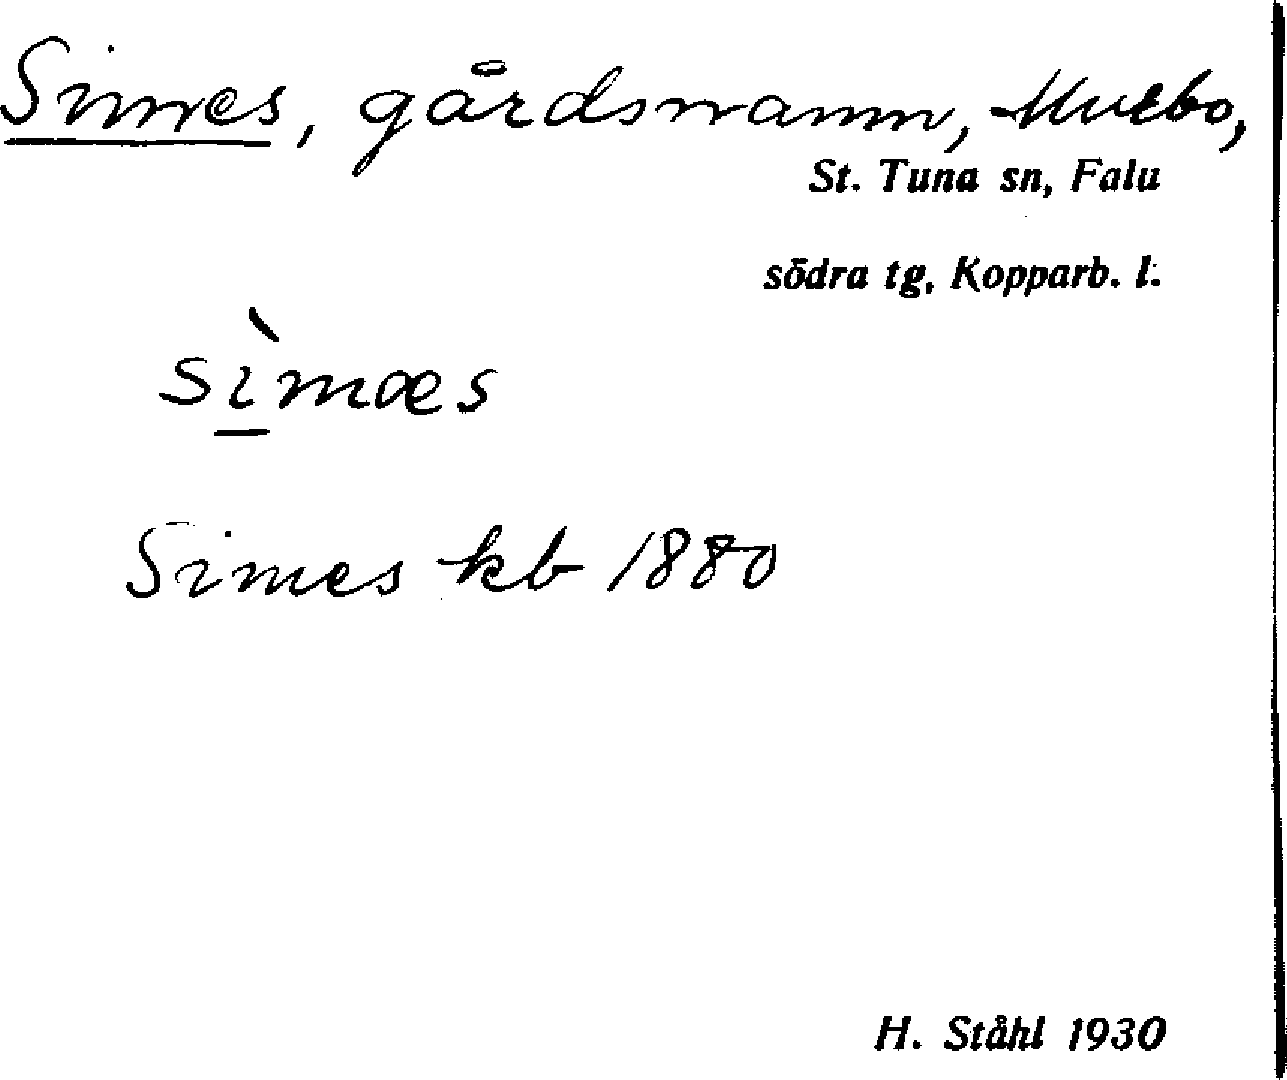 Simes, gårdsnamn, Murbo,
St. Tuna sn, Falu
södra tg, Kopparb. l.
sìmæs
Simes kb 1880
H. Ståhl 1930